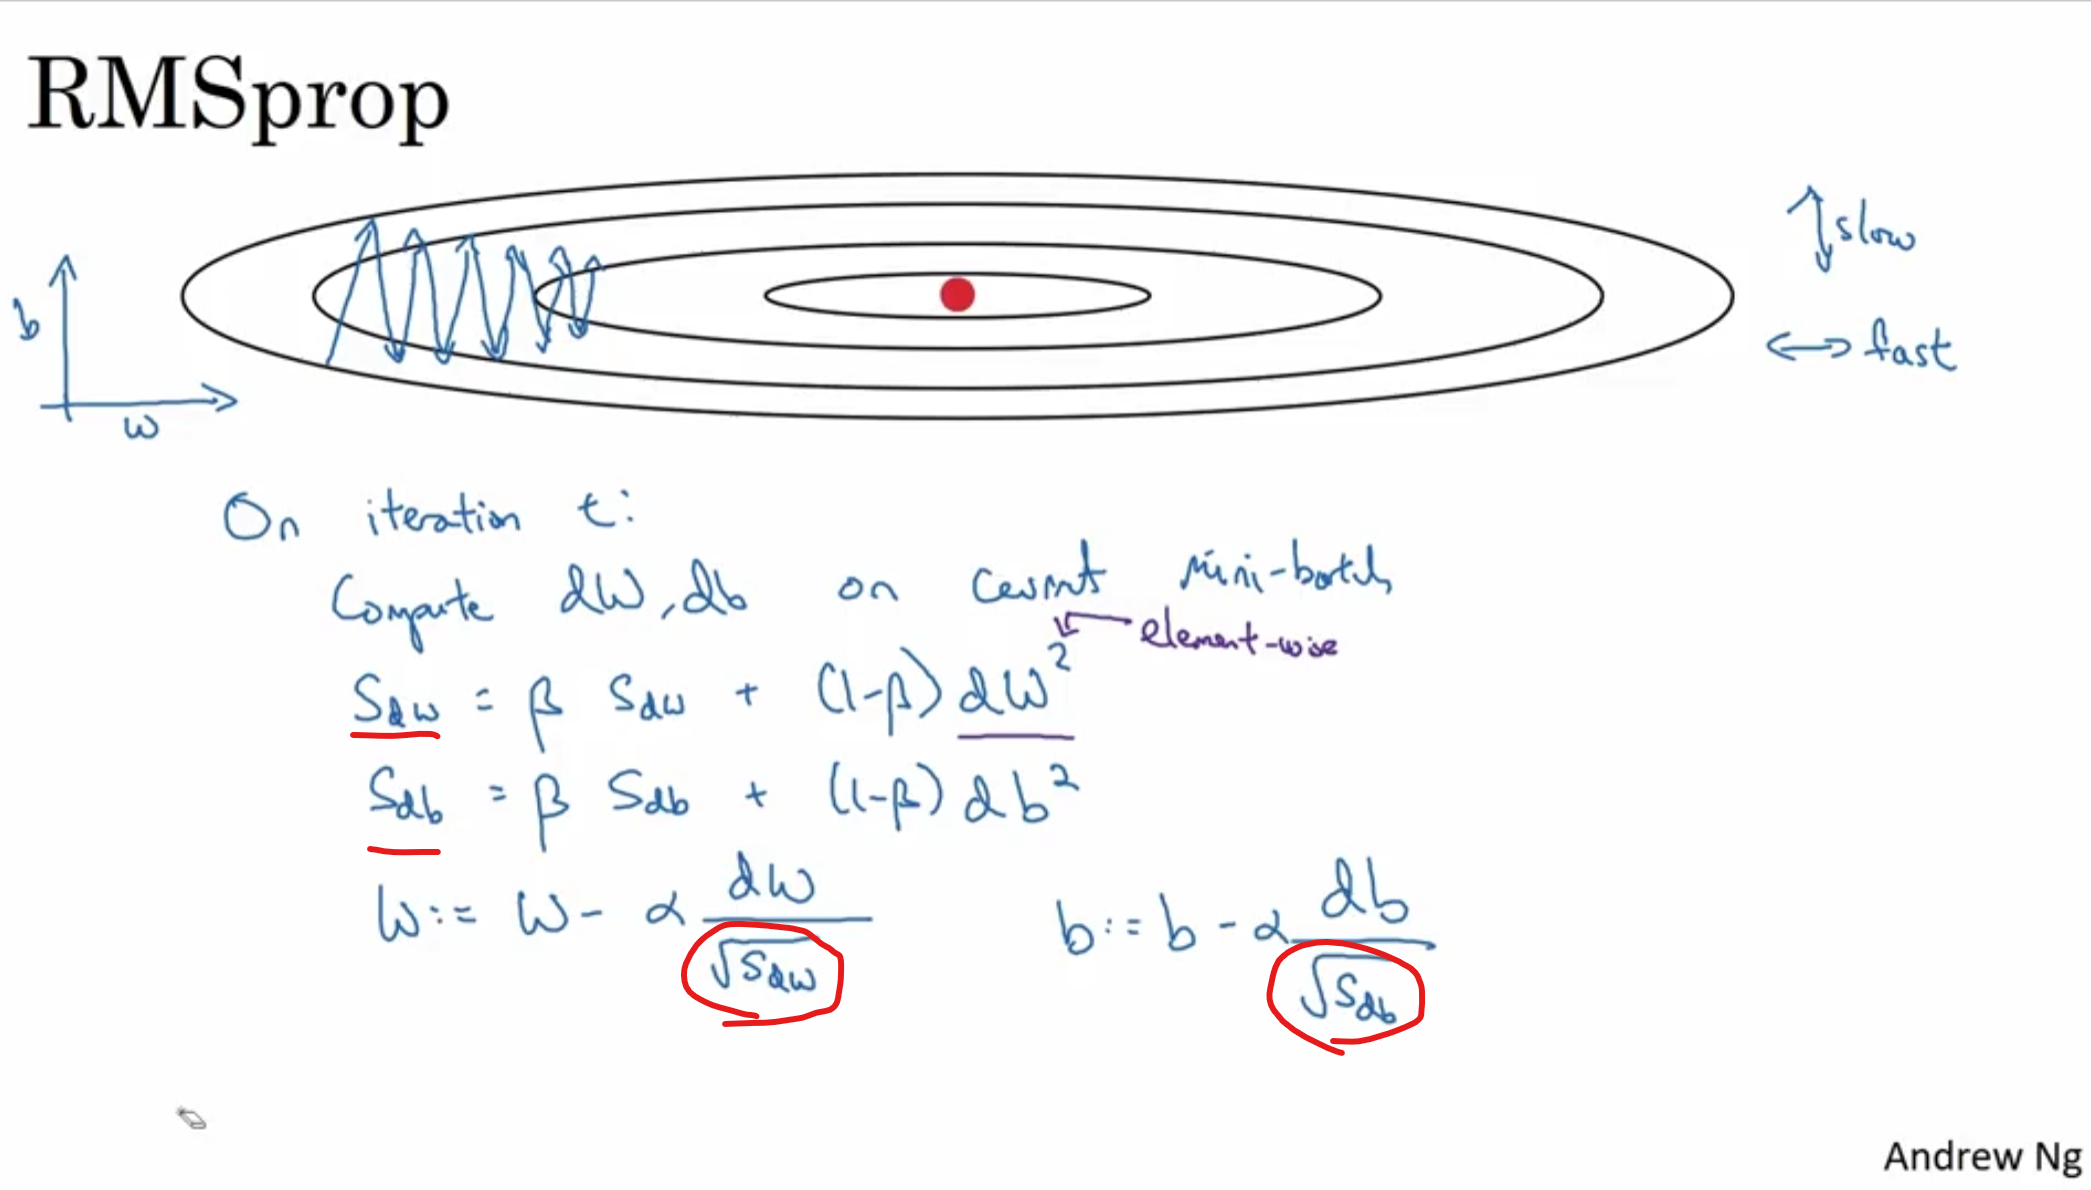 RMSprop
b
w
↕ slow
↔ fast
On iteration t:
Compute dW, db on current mini-batch
element-wise
S_dw = β S_dw + (1-β) dW²
S_db = β S_db + (1-β) db²
W := W - α dw/√S_dw b := b - α db/√S_db
Andrew Ng